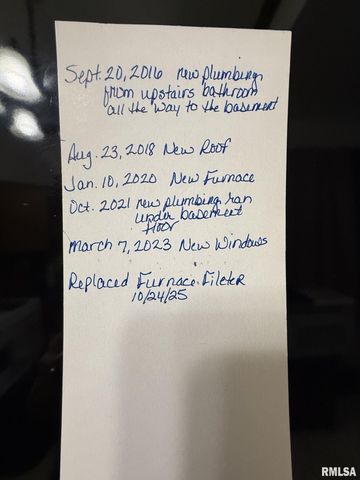 Sept. 20, 2016 new plumbing
from upstairs bathroom
all the way to the basement
Aug. 23, 2018 New Roof
Jan. 10, 2020 New Furnace
Oct. 2021 new plumbing ran
under basement
floor
March 7, 2023 New Windows
Replaced Furnace Fileter
10/24/25
RMLSA